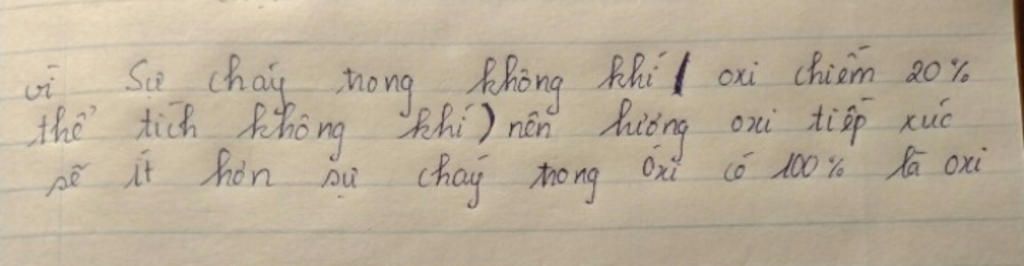 vì Sự cháy trong không khí ( oxi chiếm 20%
thể tích không khí) nên lượng oxi tiếp xúc
sẽ ít hơn sự cháy trong oxi có 100% là oxi